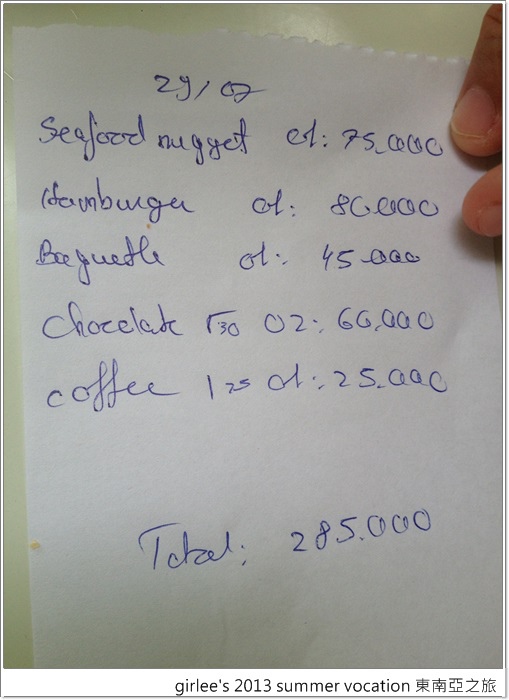 29/07
Seafood nugget 01: 75.000
Hamburger 01: 80.000
Baguette 01: 45.000
Chocolate 130 02: 60.000
coffee 125 01: 25.000
Total: 285.000
girlee's 2013 summer vocation 東南亞之旅